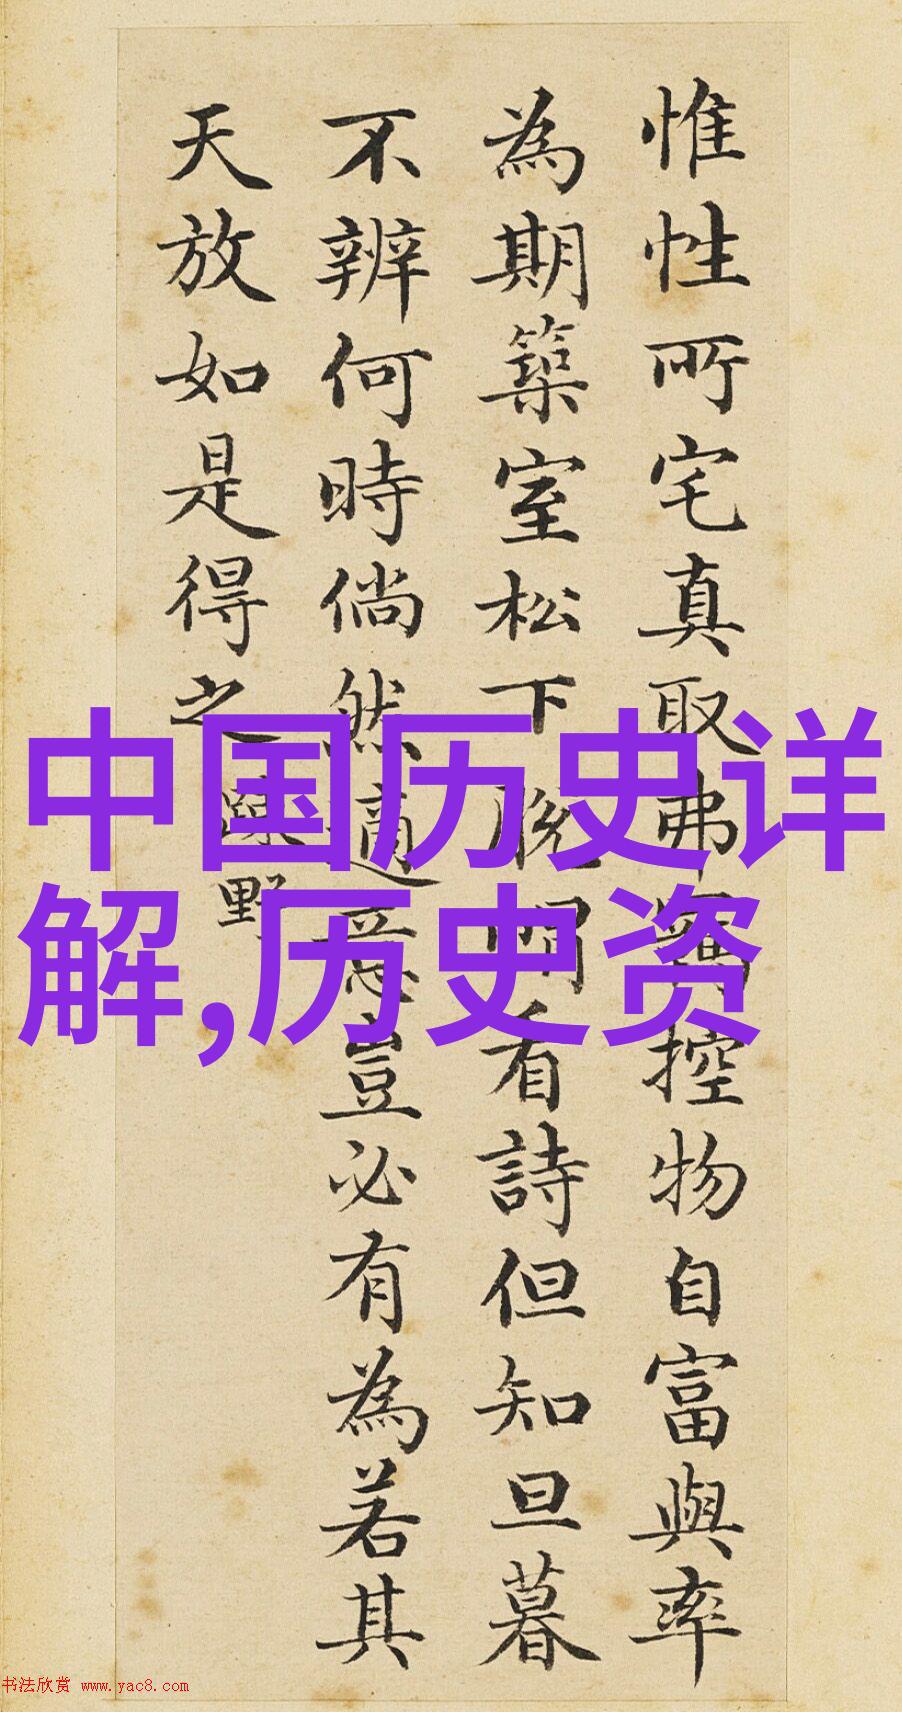 惟性所宅真取弗羈控物自富與率
為期築室松下脫帽看詩但知旦暮
不辨何時倘然適意豈必有為若其
天放如是得之 疎野
中国历史详
解,历史资
书法欣赏 www.yac8.com